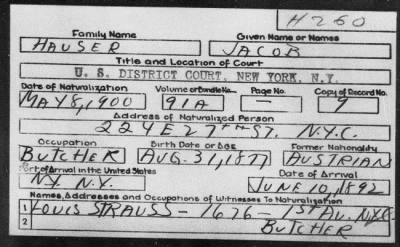 H260
Family Name Given Name or Names
HAUSER JACOB
Title and Location of Court
U. S. DISTRICT COURT, NEW YORK, N.Y.
Date of Naturalization Volume or Bundle No. Page No. Copy of Record No.
MAY 8, 1900 91A — 9
Address of Naturalized Person
224 E 27TH ST. N.Y.C.
Occupation Birth Date or Age Former Nationality
BUTCHER AUG. 31, 1877 AUSTRIAN
Port of Arrival in the United States Date of Arrival
N.Y. N.Y. JUNE 10, 1892
Names, Addresses and Occupations of Witnesses To Naturalization
1 LOUIS STRAUSS - 1676 - 1ST AV. N.Y.C.
2 BUTCHER